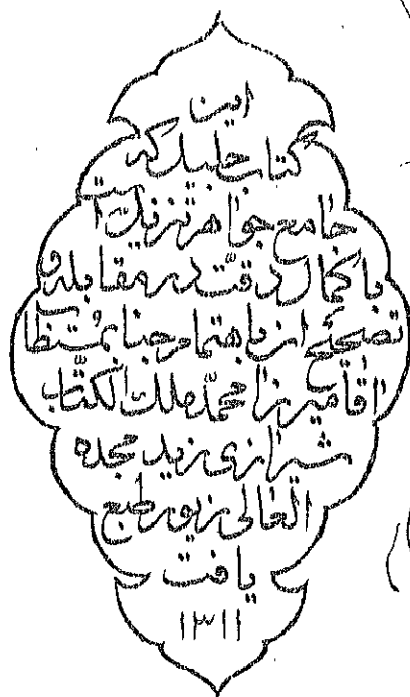 این
کتاب جلیل که
جامع جواهر تنزیل است
با کمال دقّت در مقابله و
تصحیح ان باهتمام جناب مستطاب
اقا میرزا محمّد ملك الکتّاب
شیرازی زید مجده
العالی زیور طبع
یافت
۱۳۱۱